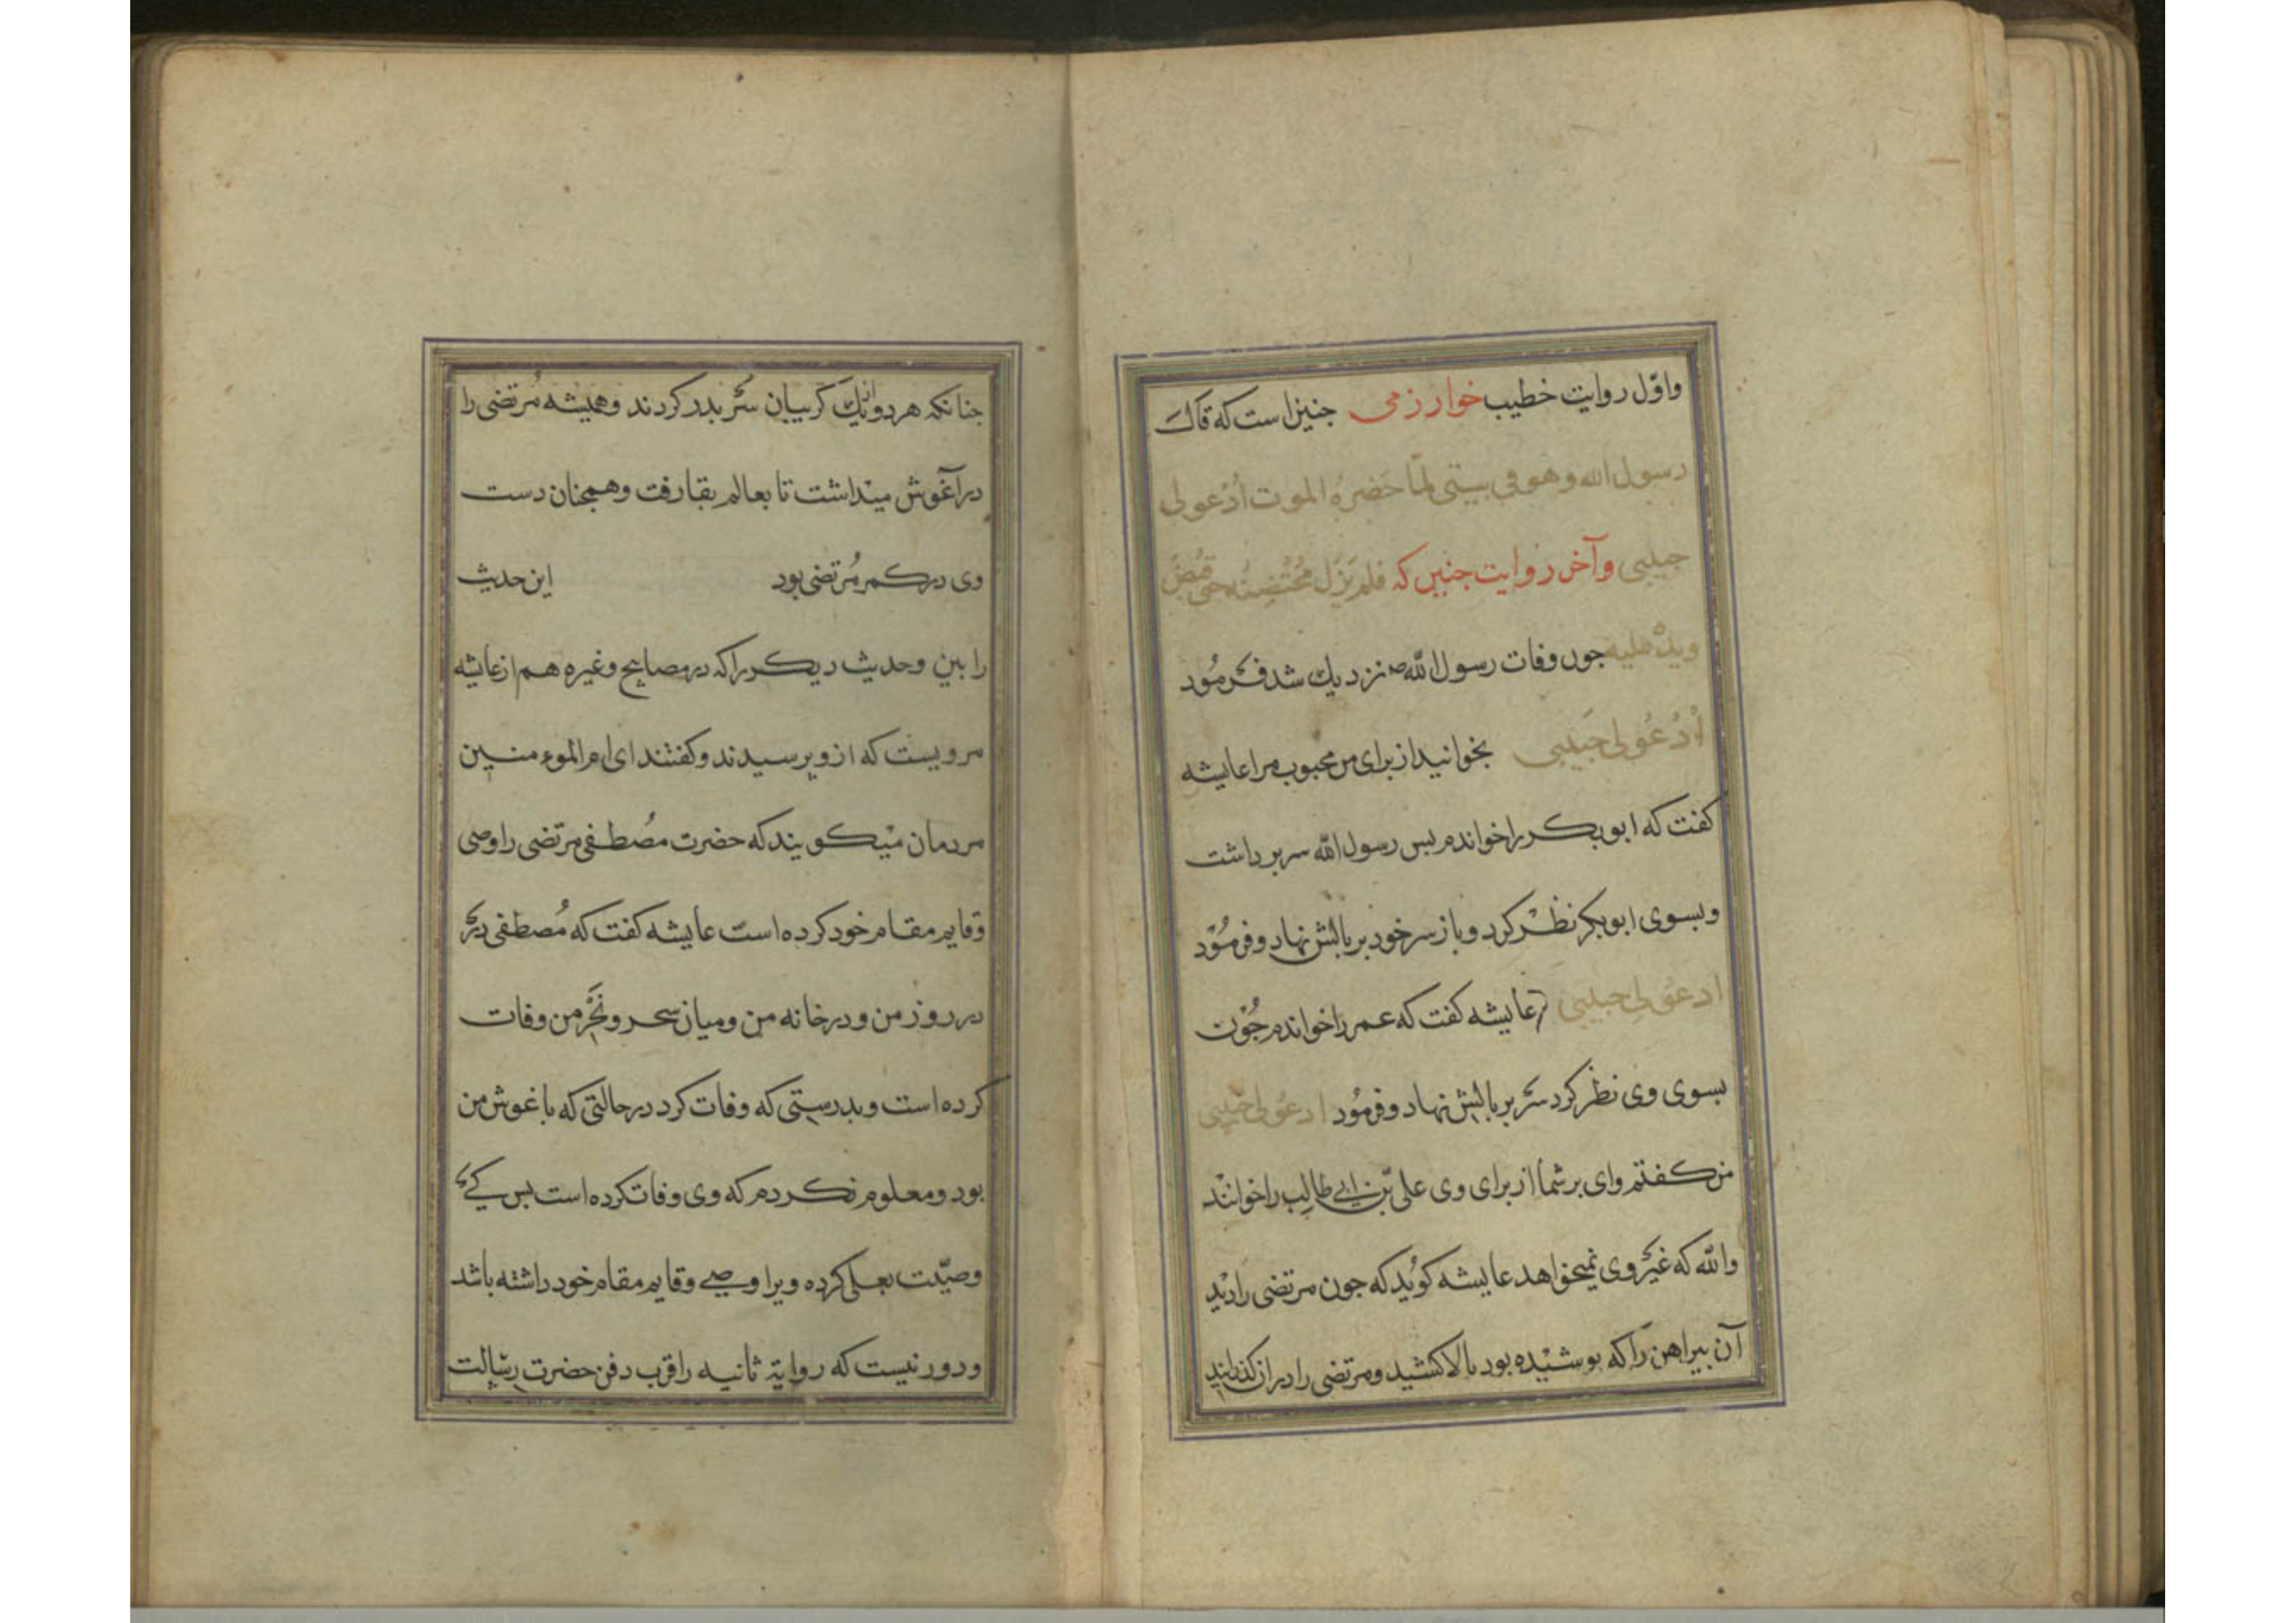 واوّل روایت خطیب خوارزمی جنین است که قال
رسول الله وهو فی بیتی لمّا حَضَرهُ الموت اُدْعو لی
حبیبی وآخر روایت جنین که فلم یَزَل مُحْتَضِنُه حتی قُبِضَ
ویدهُ علیه جون وفات رسول اللّه ص نزدیك شد فَرمُود
اُدْعُو لی حَبیبی بخوانید از برای من محبوب مرا عایشه
کفت که ابوبکر را خواندم بس رسول اللّه سر برداشت
وبسوی ابوبکر نظَر کرد و باز سر خود بر بالش نهاد و فرمُوَد
ادعو لی حبیبی عایشه کفت که عمر را خواندم جُوْن
بسوی وی نظر کرد سَر بر بالش نهاد و فرمُود ادعُو لی حبیبی
من کفتم وای بر شما از برای وی علی بن ابی طالب را خوانند
واللّه که غیر وی نمیخواهد عایشه کوُید که جون مرتضی را دید
آن بیراهن را که بوشیده بود بالا کشید و مرتضی را در ان کذرانید
جنانکه هر دو از یك کریبان سَر بدر کردند وهمیشه مُرتضی را
در آغوش میداشت تا بعالم بقا رفت و همجنان دست
وی در کمر مُرتضی بود این حدیث
را بین وحدیث دیکر را که در مصابیح وغیره هم از عایشه
مرویست که ازو برسیدند وکفتند ای ام الموءمنین
مردمان میکویند که حضرت مصُطفی مرتضی را وصی
وقایم مقام خود کرده است عایشه کفت که مُصطفی در
در روز من و در خانه من ومیان سحر ونَحْرِ من وفات
کرده است وبدرستی که وفات کرد در حالتی که باغوش من
بود ومعلوم نکردم که وی وفات کرده است بس کی
وصیّت بعلی کرده ویرا وصی وقایم مقام خود داشته باشد
ودور نیست که روایة ثانیه را قرب دفن حضرت رسالت